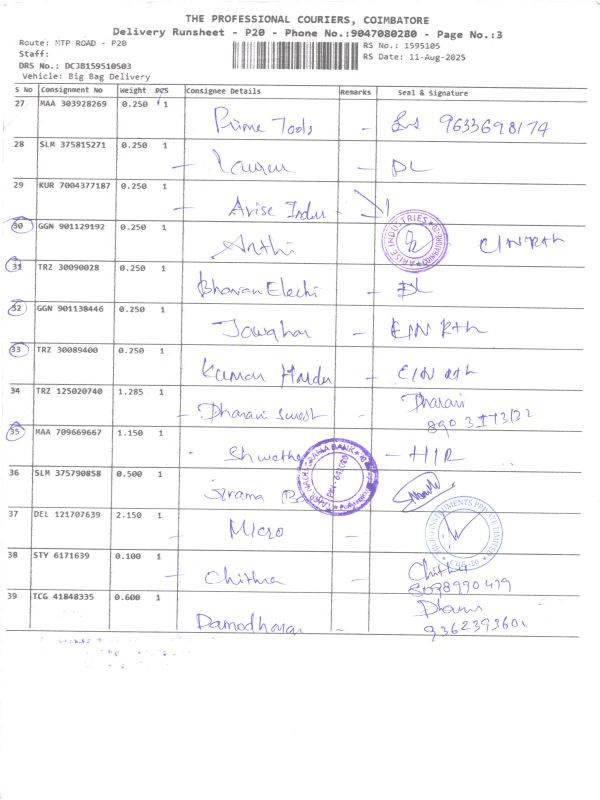 THE PROFESSIONAL COURIERS, COIMBATORE
Delivery Runsheet - P20 - Phone No.:9047080280 - Page No.:3
Route: MTP ROAD - P20
RS No.: 1595105
Staff:
RS Date: 11-Aug-2025
DRS No.: DCJB159510503
Vehicle: Big Bag Delivery
S No Consignment No Weight PCS Consignee Details Remarks Seal & Signature
27 MAA 303928269 0.250 1 Prime Tools - 9633698174
28 SLM 375815271 0.250 1 - - DL
29 KUR 7004377187 0.250 1 - Arise Indus -
30 GGN 901129192 0.250 1 Arthi ARISE INDUSTRIES
31 TRZ 30090028 0.250 1 Bhavan Elechi - DL
32 GGN 901138446 0.250 1 Jawahar -
33 TRZ 30089400 0.250 1 Kumar -
34 TRZ 125020740 1.285 1 - Dharani Dharani
35 MAA 709669667 1.150 1 Shwetha - HIR
36 SLM 375790858 0.500 1 Sirama BANK
37 DEL 121707639 2.150 1 - Micro -
38 STY 6171639 0.100 1 - Chithra - Chithra
39 TCG 41848335 0.600 1 Damodharan -
9362393601